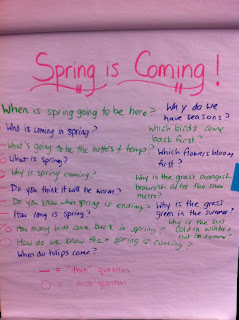 Spring is Coming!
When is spring going to be here?
Who is coming in spring?
What's going to be the hottest temp?
What is spring?
Why is spring coming?
Do you think it will be warm?
Do you know when spring is ending?
How long is spring?
How many birds come back in spring?
How do we know that spring is coming?
When do tulips come?
Why do we
have seasons?
Which birds come
back first?
Which flowers bloom
first?
Why is the grass
brownish after the snow
melts?
Why is the grass
green in the summer?
Why is the sun
cold in winter
hot in summer?
— = thin question
O = thick question